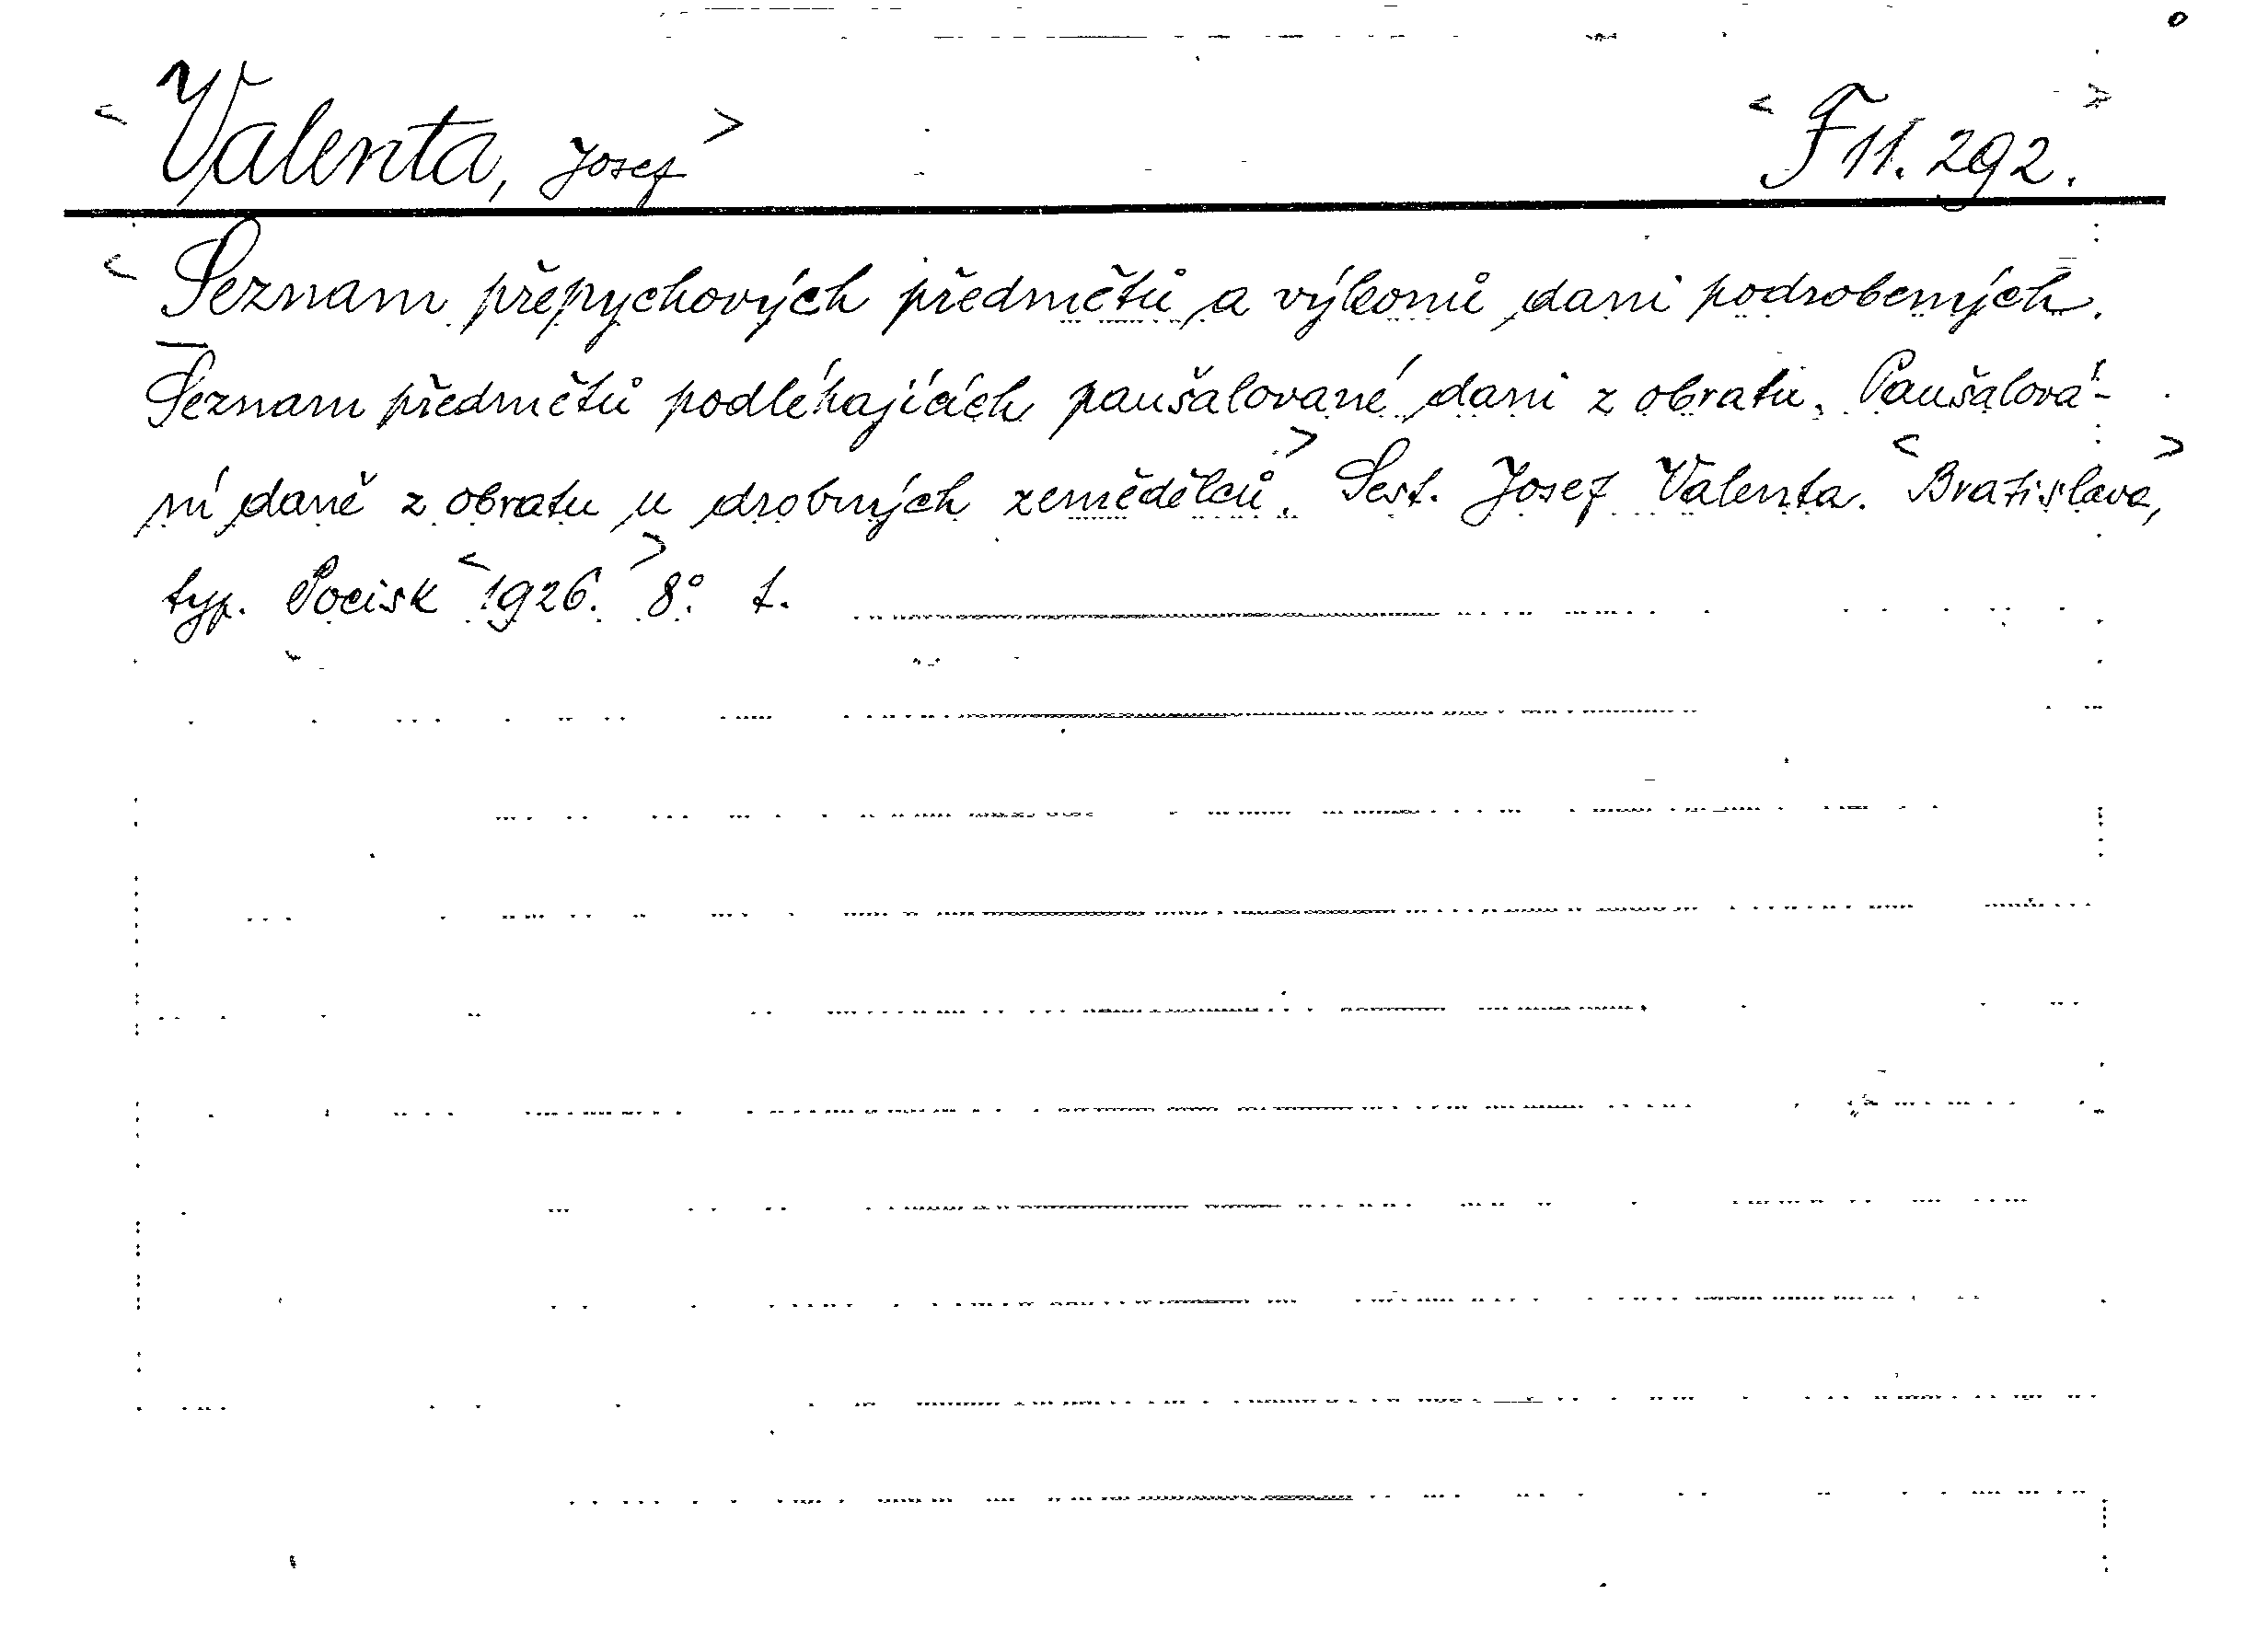 < Valenta, Josef > < F 11.292. >
< Seznam přepychových předmětů a výkonů dani podrobených.
Seznam předmětů podléhajících paušalované dani z obratu. Paušalová-
ní daně z obratu u drobných zemědělců.> Sest. Josef Valenta. <Bratislava,>
typ. Pocisk <1926.> 8° t.